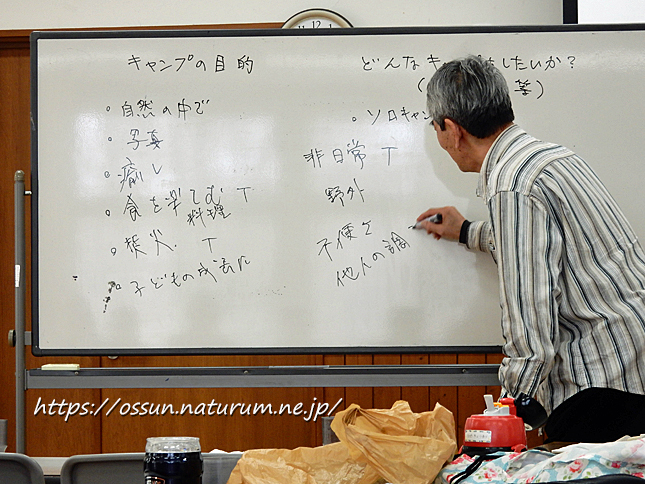 キャンプの目的
・自然の中で
・写真
・癒し
・食を楽しむ T
料理
・焚火 T
・子どもの成長に
どんなキ したいか?
( 等)
・ソロキャン
非日常 T
野外
不便を
他人の調
https://ossun.naturum.ne.jp/